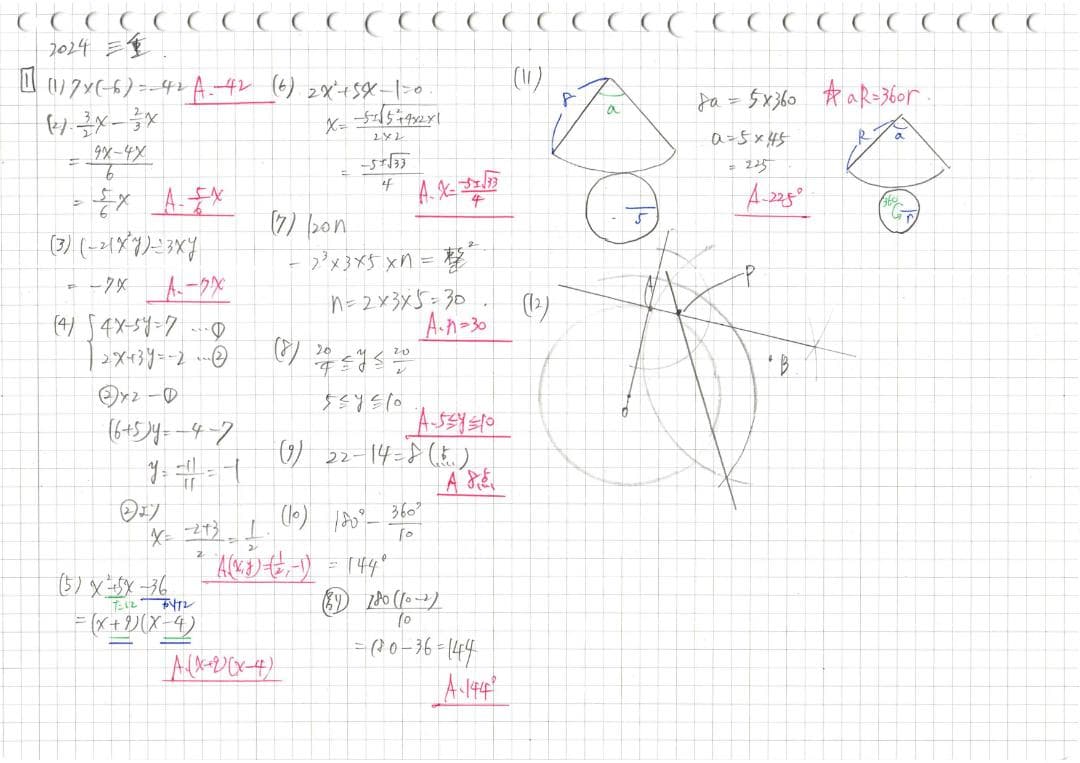 2024 三重
1
(1) 7×(-6)=-42 A.-42
(2) 3/2x-2/3x
= (9x-4x)/6
= 5/6x A. 5/6x
(3) (-21x²y)÷3xy
= -7x A.-7x
(4) { 4x-5y=7 …①
2x+3y=-2 …②
②×2-①
(6+5)y=-4-7
y= -11/11 = -1
②より
x= (-2+3)/2 = 1/2
A.(x,y)=(1/2,-1)
(5) x²+5x-36
=(x+9)(x-4)
A.(x+9)(x-4)
(6) 2x²+5x-1=0
x= (-5±√5²+4×2×1)/(2×2)
= (-5±√33)/4
A. x= (-5±√33)/4
(7) 120n
= 2³×3×5×n=整²
n=2×3×5=30
A.n=30
(8) 20/4≦y≦20/2
5≦y≦10
A.5≦y≦10
(9) 22-14=8(点)
A 8点
(10) 180°- 360°/10
=144°
別 180(10-2)/10
=180-36=144
A.144°
(11)
8
a
5
8a=5×360
a=5×45
=225
A.225°
☆ aR=360r
R
a
360
r
(12)
A
P
B
O